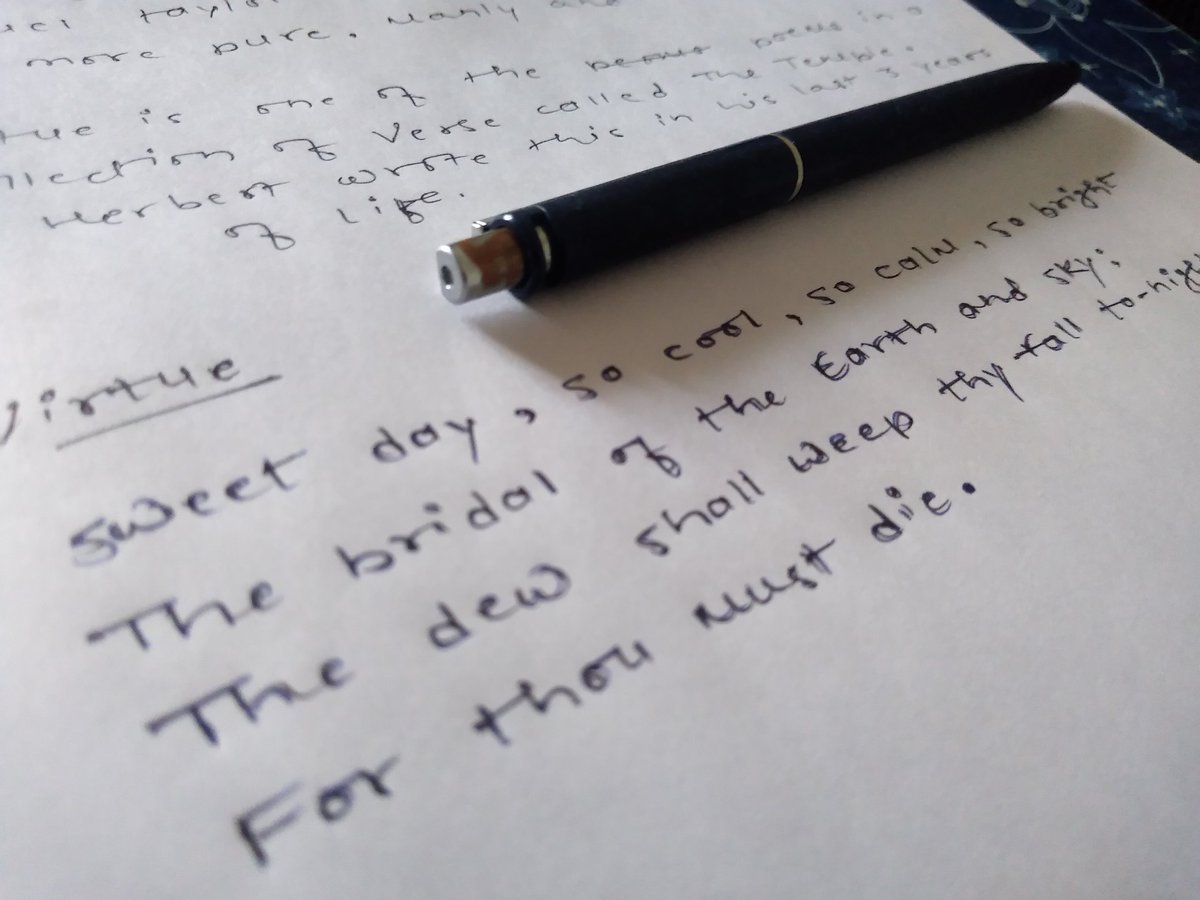 taylor
more pure. Manly and
is one of the poems in a
of Verse called The Temple.
Herbert wrote this in his last 3 years
of life.
Virtue
Sweet day, so cool, so calm, so bright
The bridal of the Earth and sky:
The dew shall weep thy fall to-nigh
For thou must die.